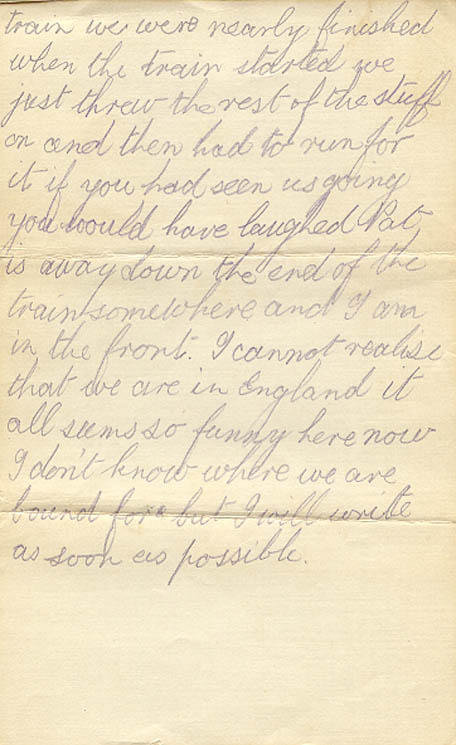 train we were nearly finished
when the train started we
just threw the rest of the stuff
on and then had to run for
it if you had seen us going
you would have laughed Pat
is away down the end of the
train somewhere and I am
in the front. I cannot realise
that we are in England it
all seems so funny here now
I don't know where we are
bound for but I will write
as soon as possible.